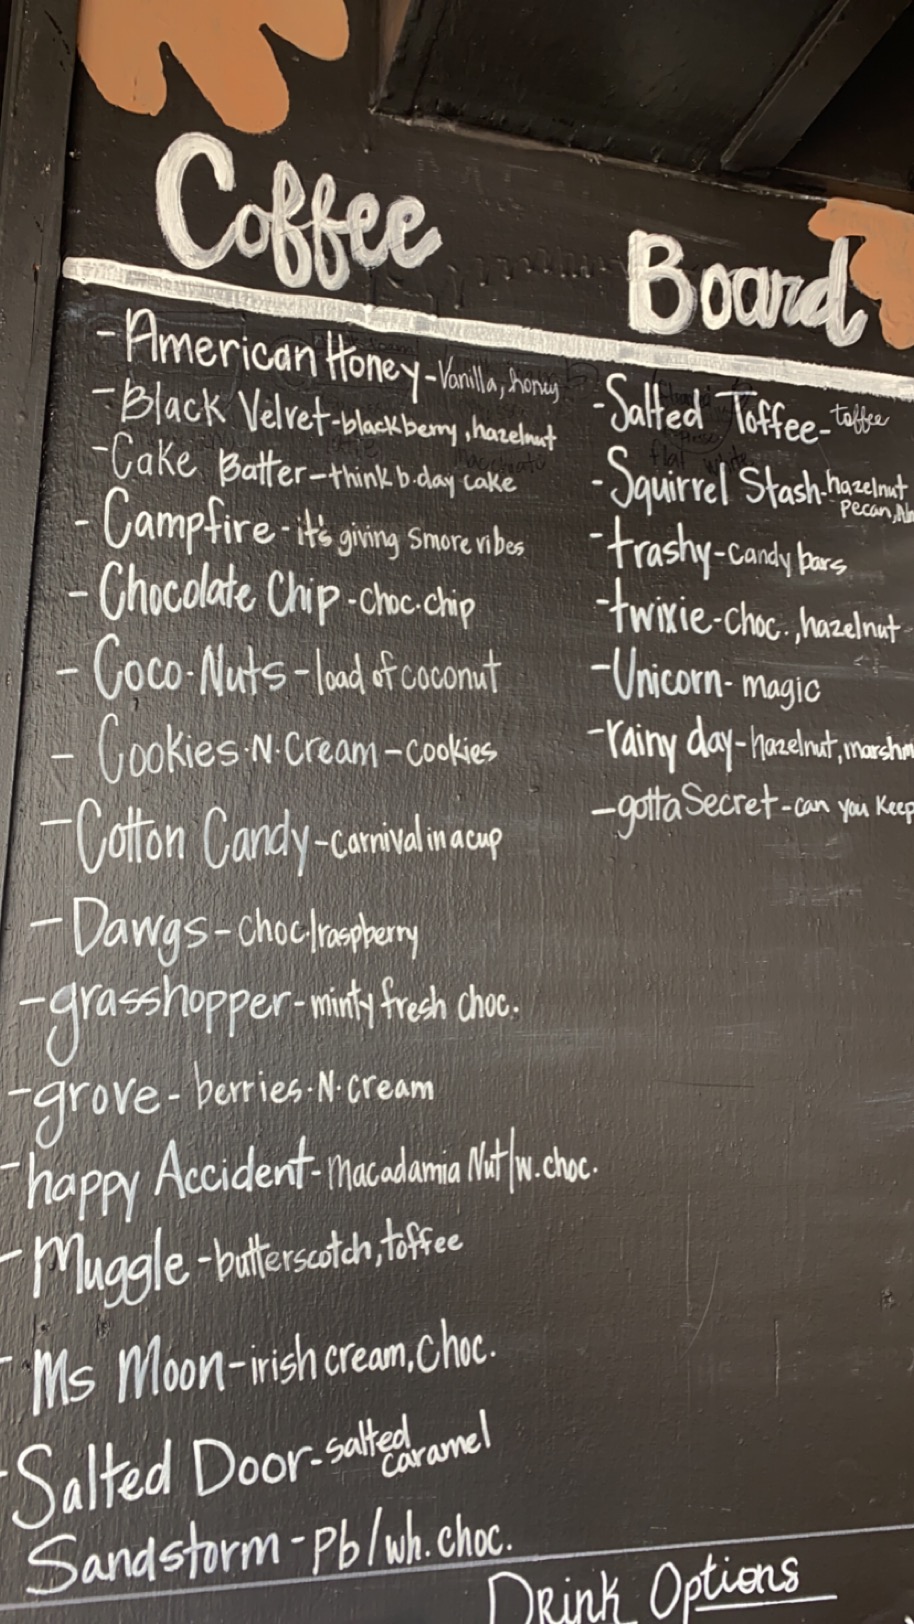 Coffee Board
- American Honey - Vanilla, honey
- Black Velvet - blackberry, hazelnut
- Cake Batter - think b.day cake
- Campfire - it's giving Smore vibes
- Chocolate Chip - choc. chip
- Coco. Nuts - load of coconut
- Cookies. N. Cream - cookies
- Cotton Candy - carnival in a cup
- Dawgs - choc/raspberry
- grasshopper - minty fresh choc.
- grove - berries. N. cream
- happy Accident - Macadamia Nut/w. choc.
- Muggle - butterscotch, toffee
- Ms Moon - irish cream, choc.
- Salted Door - salted
caramel
Sandstorm - pb/wh. choc.
- Salted Toffee - toffee
- Squirrel Stash - hazelnut
pecan,
- trashy - candy bars
- twixie - choc., hazelnut
- Unicorn - magic
- rainy day - hazelnut,
- gotta Secret - can you keep
Drink Options